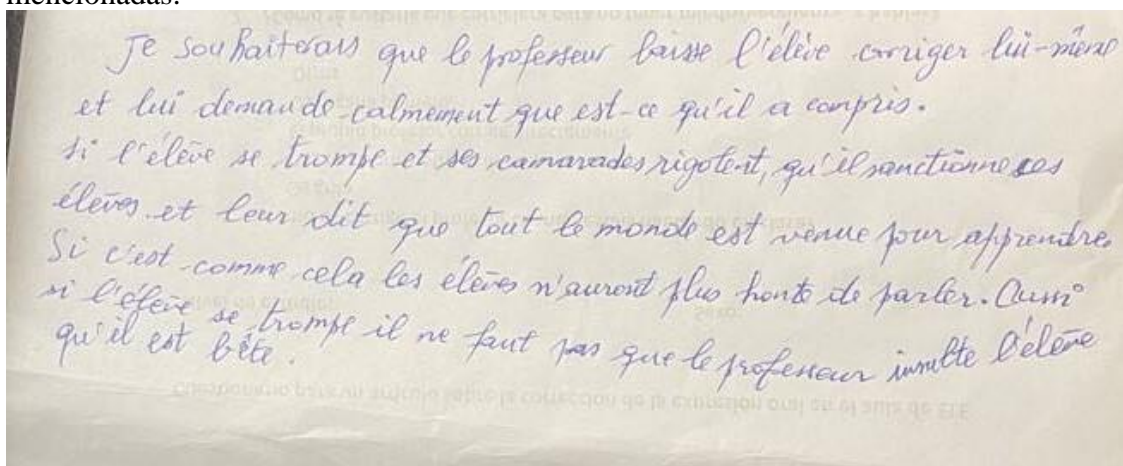 mencionadas.
Je souhaiterais que le professeur laisse l'élève corriger lui-même
et lui demande calmement que est-ce qu'il a compris.
si l'élève se trompe et ses camarades rigolent, qu'il sanctionne ces
élèves et leur dit que tout le monde est venue pour apprendre.
Si c'est comme cela les élèves n'auront plus honte de parler. Aussi
si l'élève se trompe il ne faut pas que le professeur insulte l'élève
qu'il est bête.
Cuestionario para un artículo sobre la corrección de la expresión oral en el aula de ELE